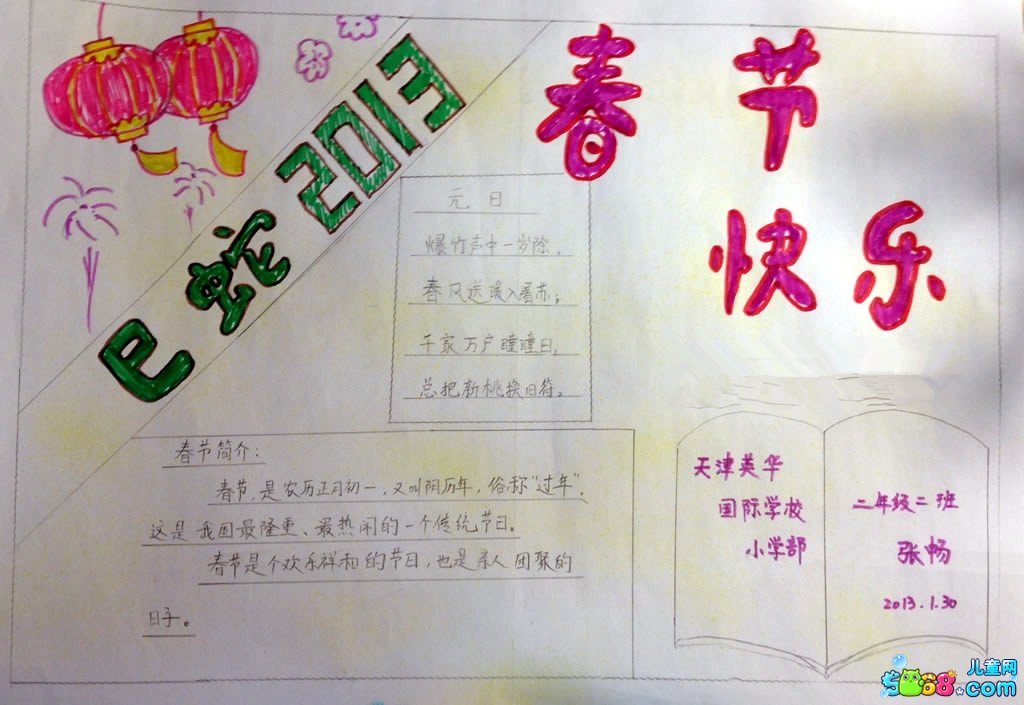 春节
快乐
巳蛇2013
元日
爆竹声中一岁除，
春风送暖入屠苏；
千家万户曈曈日，
总把新桃换旧符。
春节简介：
春节，是农历正月初一，又叫阴历年，俗称“过年”。
这是我国最隆重、最热闹的一个传统节日。
春节是个欢乐祥和的节日，也是亲人团聚的
日子。
天津英华
国际学校
小学部
二年级二班
张畅
2013.1.30
儿童网
5068.com